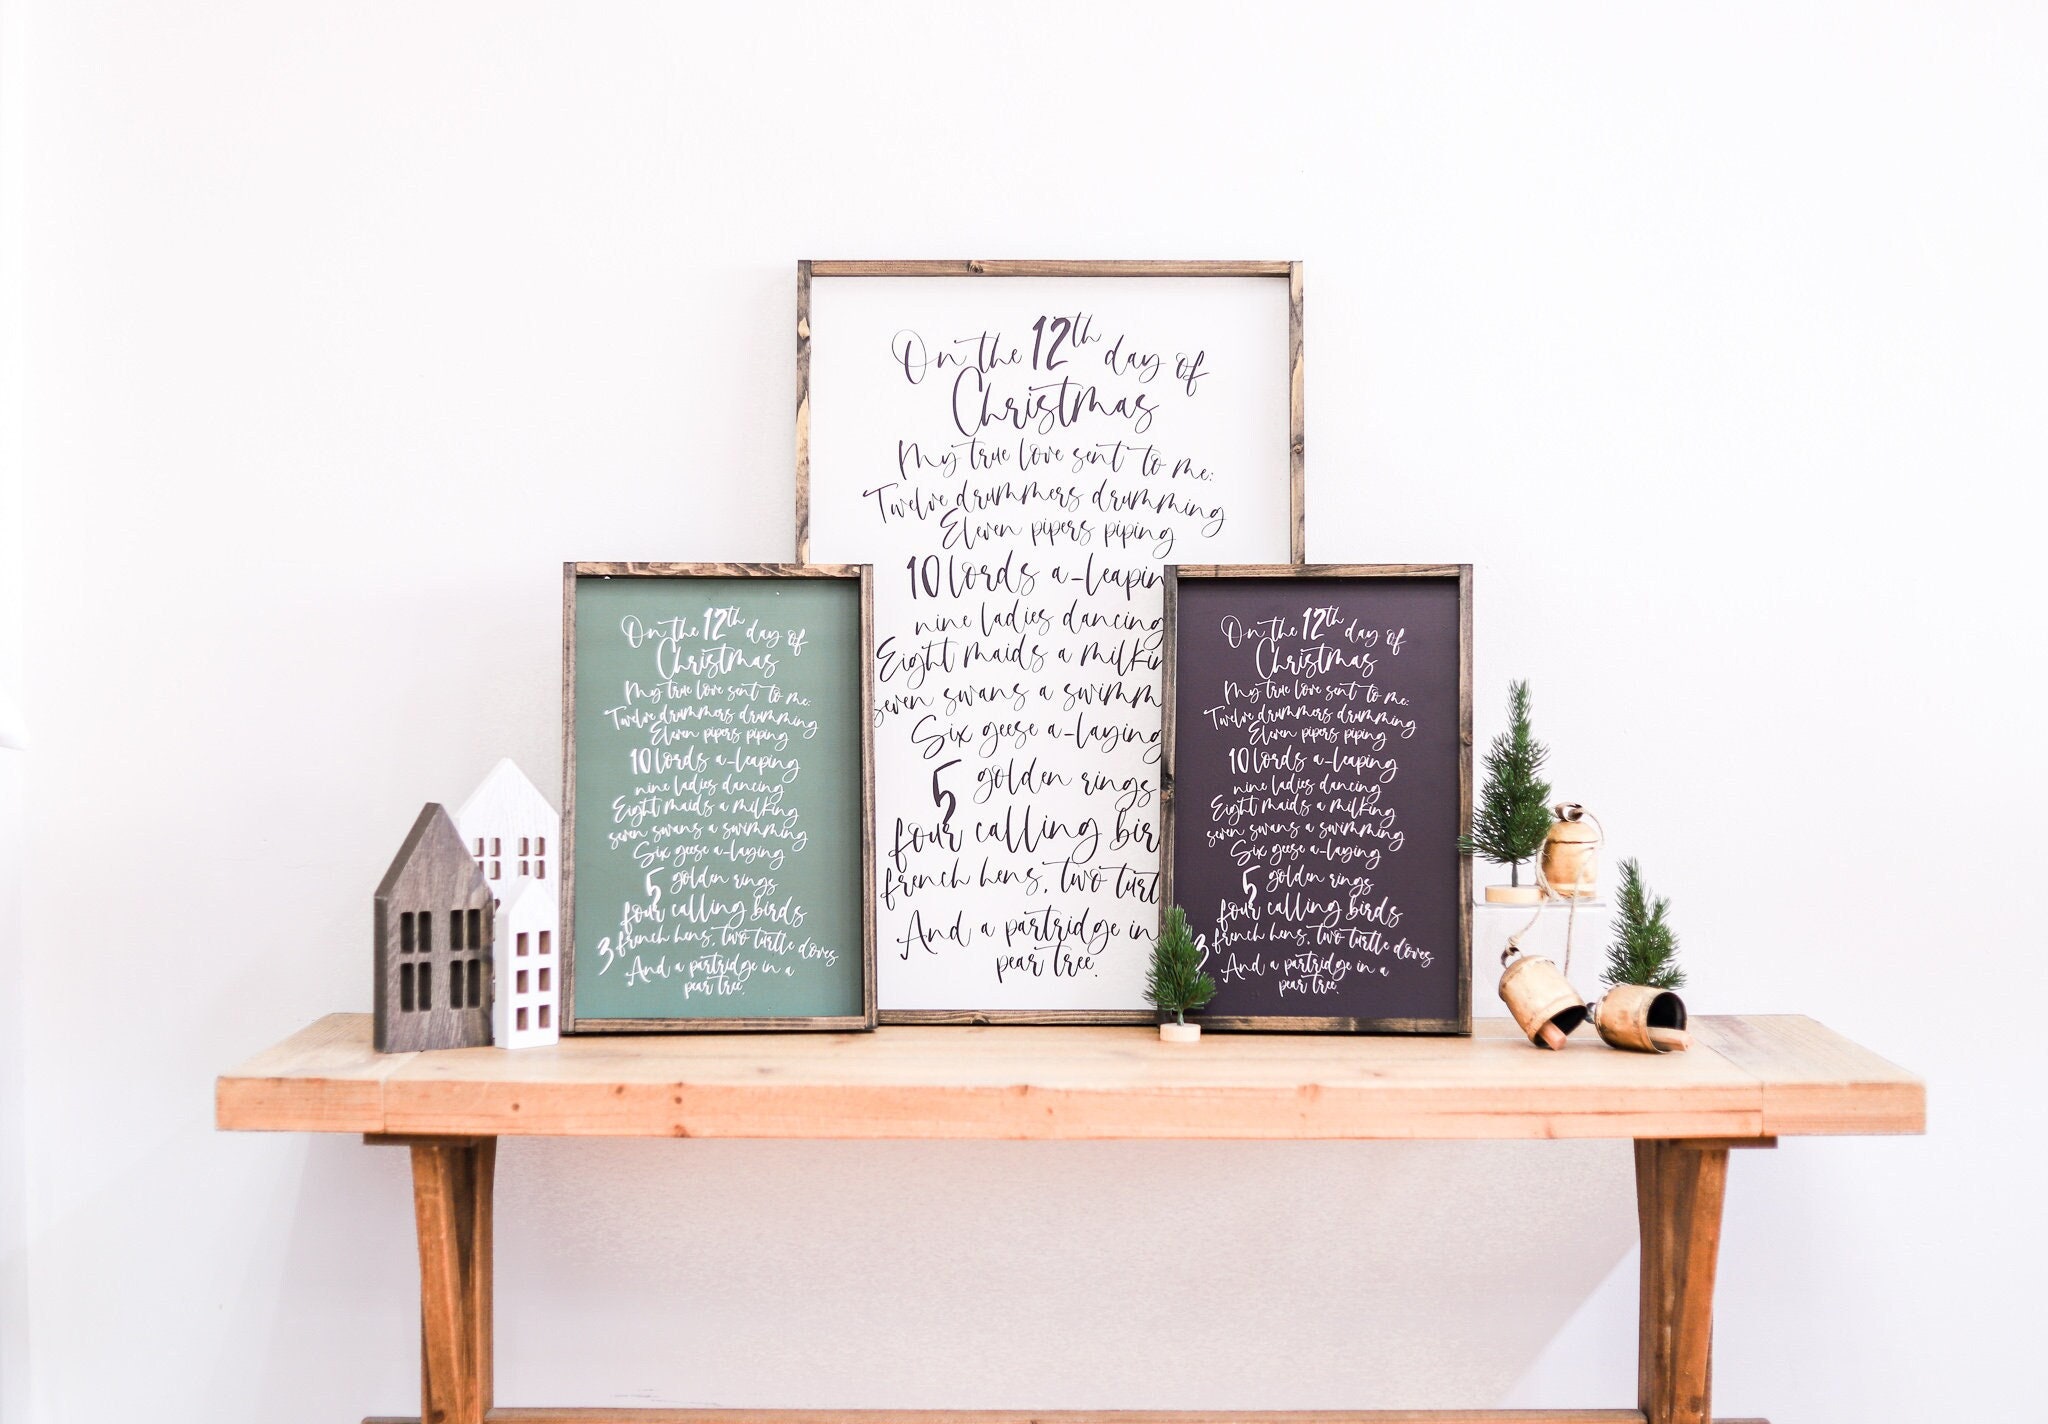 On the 12th day of
Christmas
My true love sent to me:
Twelve drummers drumming
Eleven pipers piping
10 lords a-leapin
nine ladies dancing
Eight maids a milkin
seven swans a swimm
Six geese a-laying
5 golden rings
four calling bir
french hens, two turtl
And a partridge in
pear tree.
On the 12th day of
Christmas
My true love sent to me:
Twelve drummers drumming
Eleven pipers piping
10 lords a-leaping
nine ladies dancing
Eight maids a milking
seven swans a swimming
Six geese a-laying
5 golden rings
four calling birds
3 french hens, two turtle doves
And a partridge in a
pear tree.
On the 12th day of
Christmas
My true love sent to me:
Twelve drummers drumming
Eleven pipers piping
10 lords a-leaping
nine ladies dancing
Eight maids a milking
seven swans a swimming
Six geese a-laying
5 golden rings
four calling birds
3 french hens, two turtle doves
And a partridge in a
pear tree.